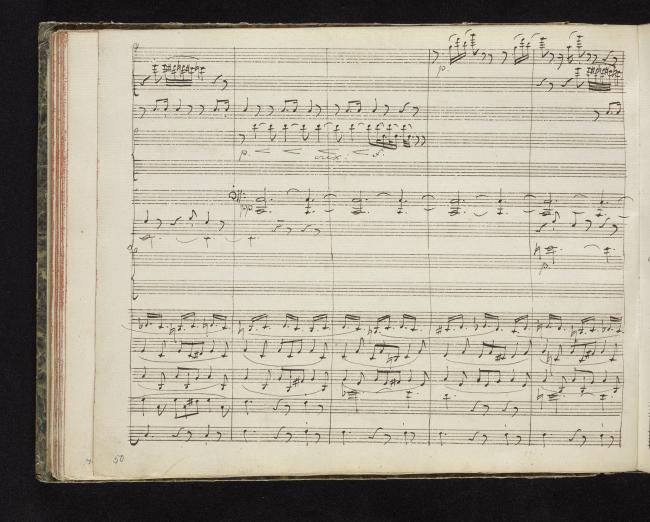 p.
p.
cresc.
f.
pp
p.
50